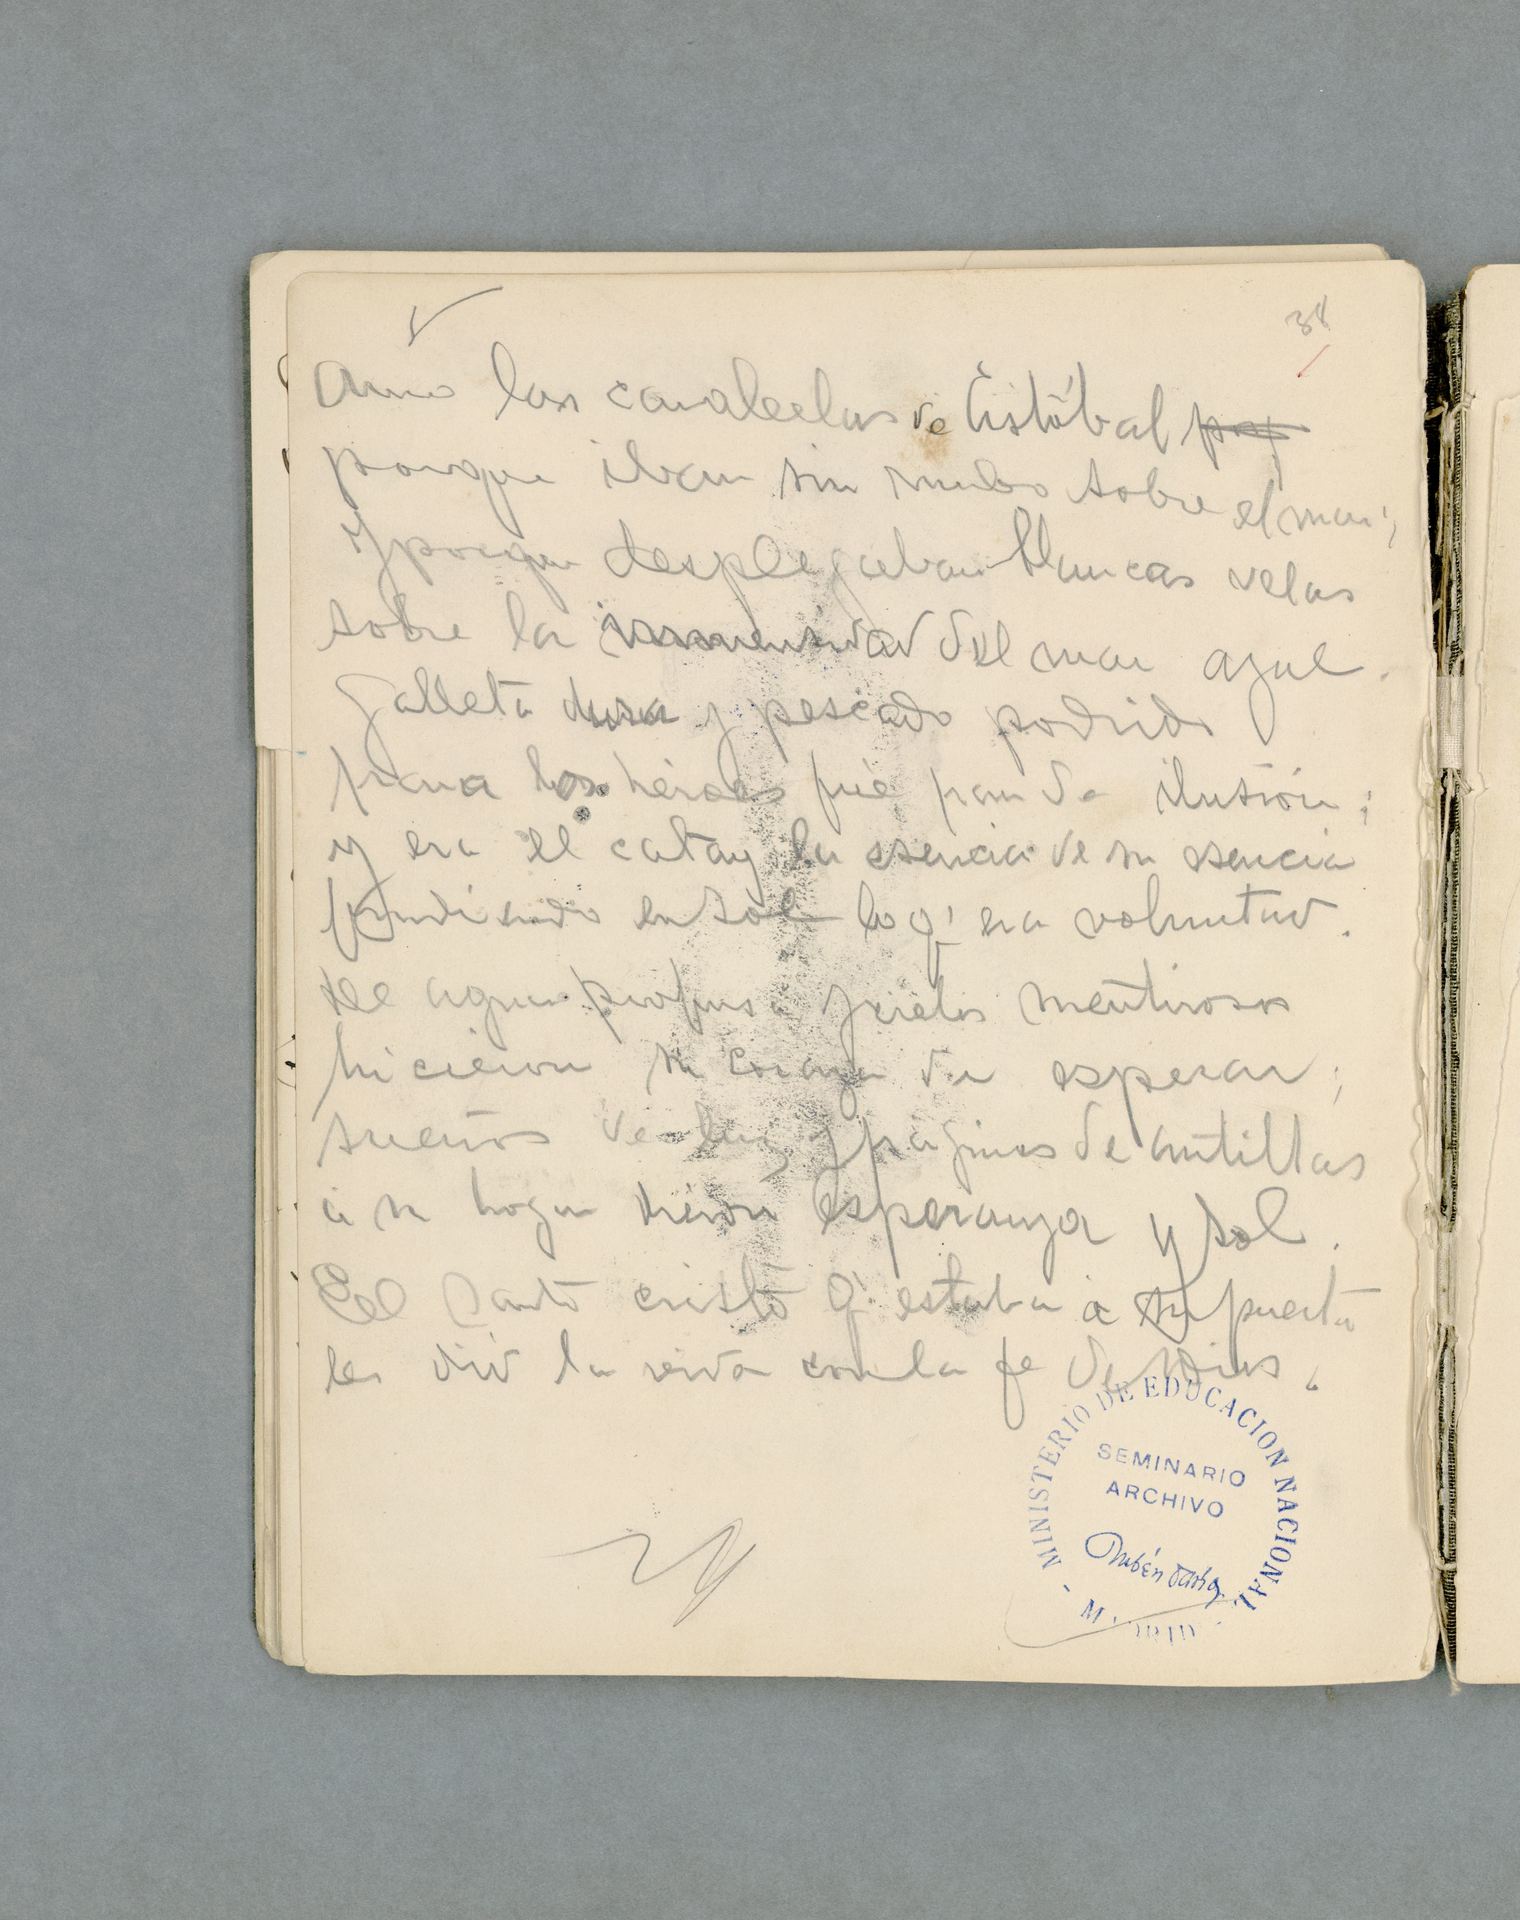 38
Amo las carabelas de Cristóbal
porque iban sin rumbo sobre el mar;
y porque desplegaban blancas velas
sobre la inmensidad del mar azul.
Galleta dura y pescado podrido
para los héroes fué pan de ilusión;
y era el catay la esencia de su esencia
fundiendo en sol lo q' era voluntad.
De agua profunda y cielos mentirosos
hicieron su coraza de esperar;
sueños de luz y páginas de antillas
á su hogar dieron esperanza y sol.
El Santo cristo q' estaba á su puerta
les dió la vida con la fe de Dios.
MINISTERIO DE EDUCACION NACIONAL
SEMINARIO
ARCHIVO
Rubén Darío